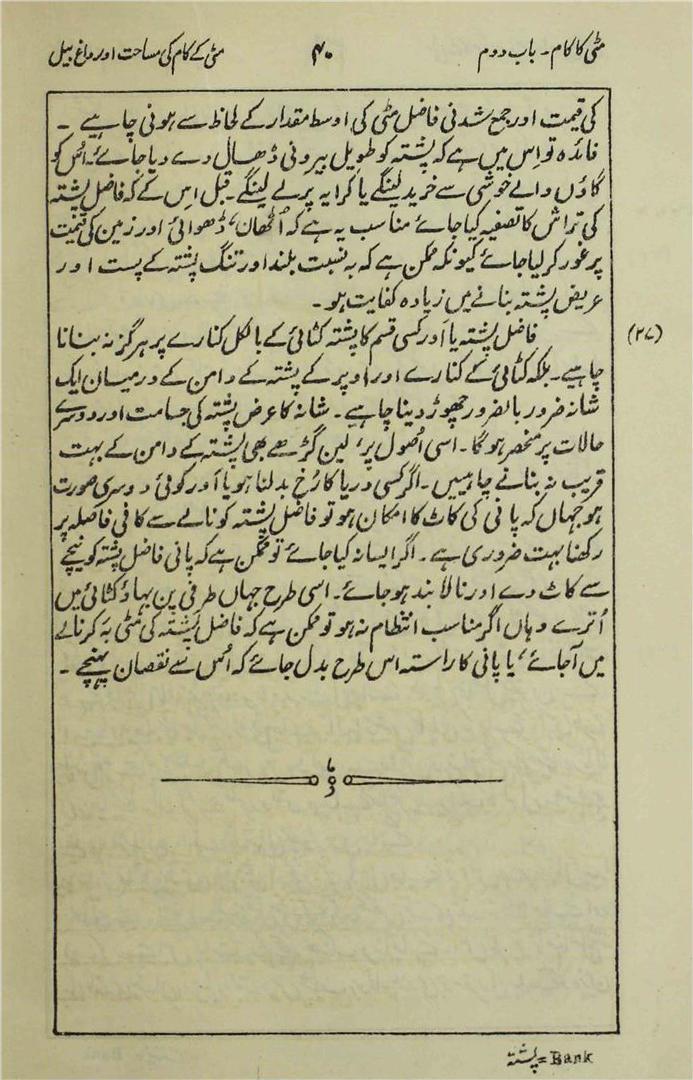 مٹی کا کام - باب دوم
۴۰
مٹی کے کام کی مساحت اور داغ بیل
کی قیمت اور جمع شدنی فاضل مٹی کی اوسط مقدار کے لحاظ سے ہونی چاہیے ۔
فائدہ تو اِس میں ہے کہ پشتہ کو طویل بیرونی ڈھال دے دیا جائے۔ اُس کو
گاؤں والے خوشی سے خرید لینگے یا کرایہ پر لے لینگے۔ قبل اِس کے کہ فاضل پشتہ
کی تراش کا تصفیہ کیا جائے مناسب یہ ہے کہ اُٹھان، ڈھوائی اور زمین کی قیمت
پر غور کر لیا جائے کیونکہ ممکن ہے کہ بہ نسبت بلند اور تنگ پشتہ کے پست اور
عریض پشتہ بنانے میں زیادہ کفایت ہو ۔
(۲۷)
فاضل پشتہ یا اَور کسی قسم کا پشتہ کٹائی کے بالکل کنارے پر ہرگز نہ بنانا
چاہیے۔ بلکہ کٹائی کے کنارے اور اوپر کے پشتہ کے دامن کے درمیان ایک
شانہ ضرور بالضرور چھوڑ دینا چاہیے ۔ شانہ کا عرض پشتہ کی جسامت اور دوسرے
حالات پر منحصر ہوگا۔ اسی اُصول پر، لین گڑھے بھی پشتہ کے دامن کے بہت
قریب نہ بنانے چاہییں ۔ اگر کسی دریا کا رُخ بدلنا ہو یا اَور کوئی دوسری صورت
ہو جہاں کہ پانی کی کاٹ کا امکان ہو تو فاضل پشتہ کو نالے سے کافی فاصلہ پر
رکھنا بہت ضروری ہے ۔ اگر ایسا نہ کیا جائے تو ممکن ہے کہ پانی فاضل پشتہ کو نیچے
سے کاٹ دے اور نالا بند ہو جائے۔ اسی طرح جہاں طرفی پن بہاؤ کٹائی میں
اُترے وہاں اگر مناسب انتظام نہ ہو تو ممکن ہے کہ فاضل پشتہ کی مٹی بہ کر نالے
میں آجائے، یا پانی کا راستہ اس طرح بدل جائے کہ اُس سے نقصان پہنچے ۔
پشتہ = Bank